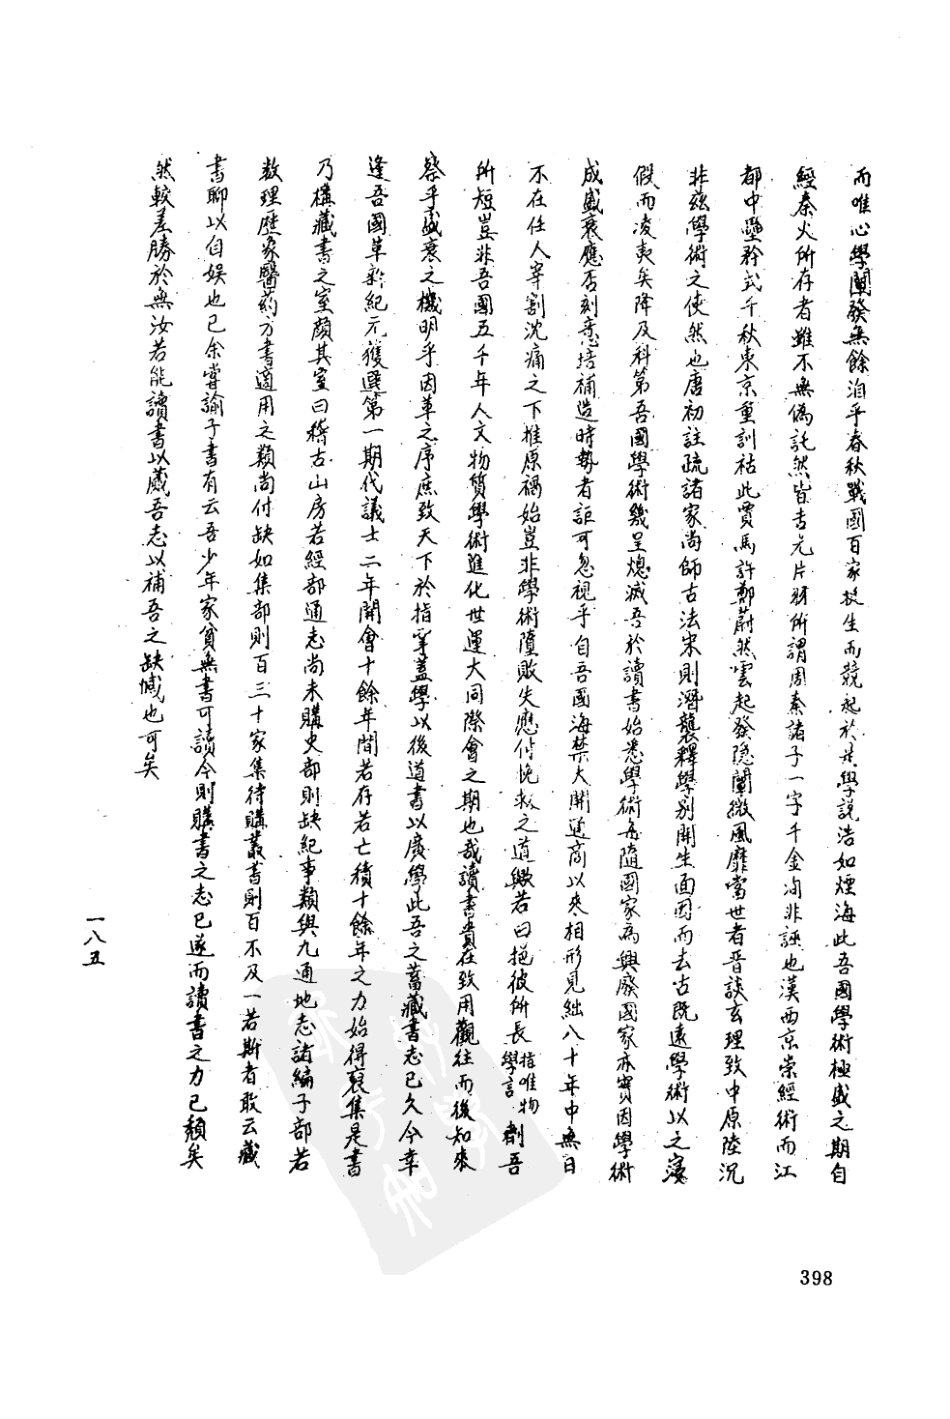 而唯心學闡發無餘洎乎春秋戰國百家挺生而競起於是學說浩如煙海此吾國學術極盛之期自
經秦火所存者雖不無偽託然皆吉光片羽所謂周秦諸子一字千金洵非誣也漢西京崇經術而江
都中壘矜式千秋東京重訓詁此賈馬許鄭蔚然雲起發隱闡微風靡當世者晉談玄理致中原陸沉
非茲學術之使然也唐初註疏諸家尚師古法宋則潛襲釋學別開生面因而去古既遠學術以之寖
假而凌夷矣降及科第吾國學術幾呈熄滅吾於讀書始悉學術為隨國家為興廢國家亦實因學術
成盛衰應否刻意培補造時勢者詎可忽視乎自吾國海禁大開通商以來相形見絀八十年中無日
不在任人宰割沈痛之下推原禍始豈非學術墮敗失應付挽救之道歟若曰挹彼所長指唯物學言劑吾
所短豈非吾國五千年人文物質學術進化世運大同際會之期也哉讀書貴在致用觀往而後知來
察乎盛衰之機明乎因革之序庶致天下於指掌蓋學以後道書以廣學此吾之蓄藏書志已久今幸
逢吾國革新紀元獲選第一期代議士二年開會十餘年間若存若亡積十餘年之力始得裒集是書
乃構藏書之室顏其室曰稽古山房若經部通志尚未購史部則缺紀事類與九通地志諸編子部若
数理歷象醫葯方書適用之類尚付缺如集部則百三十家集待購叢書則百不及一若斯者敢云藏
書聊以自娛也已余嘗諭子書有云吾少年家貧無書可讀今則購書之志已遂而讀書之力已頹矣
然較差勝於無汝若能讀書以慰吾志以補吾之缺憾也可矣
一八五
398